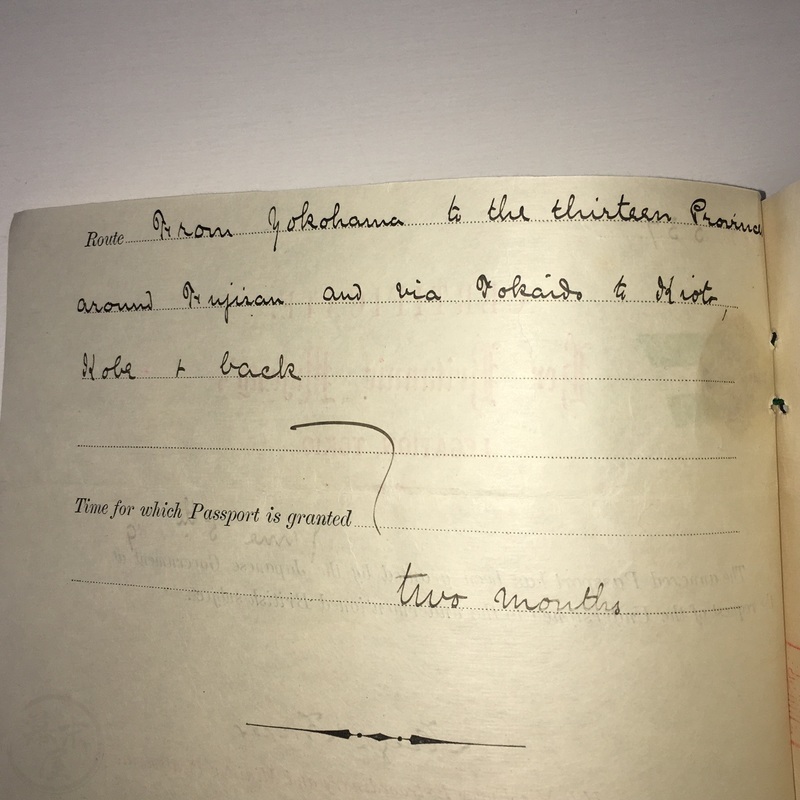 Route From Yokohama to the thirteen Province
around Fujisan and via Tokaido to Kioto,
Kobe & back
Time for which Passport is granted
two months